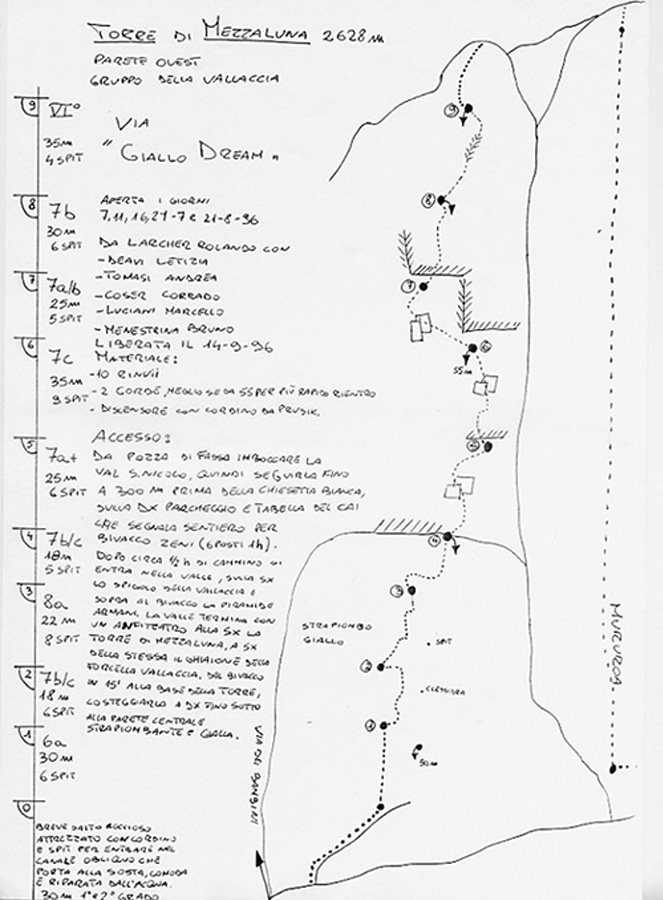 TORRE DI MEZZALUNA 2628m
PARETE OVEST
GRUPPO DELLA VALLACCIA
VIA
"GIALLO DREAM"
APERTA I GIORNI
7,11,16,21-7 e 21-8-96
DA LARCHER ROLANDO CON
-DEAVI LETIZIA
-TOMASI ANDREA
-COSER CORRADO
-LUCIANI MARCELLO
-MENESTRINA BRUNO
LIBERATA IL 14-9-96
MATERIALE:
-10 RINVII
-2 CORDE, MEGLIO SE DA 55 PER PIÙ RAPIDO RIENTRO
-DISCENSORE CON CORDINO DA PRUSIK.
ACCESSO:
DA POZZA DI FASSA IMBOCCARE LA
VAL S.NICOLO, QUINDI SEGUIRLA FINO
A 300 M PRIMA DELLA CHIESETTA BIANCA,
SULLA DX PARCHEGGIO E TABELLA DEL CAI
CHE SEGNALA SENTIERO PER
BIVACCO ZENI (6 POSTI 1h).
DOPO CIRCA 1/2 h DI CAMMINO SI
ENTRA NELLA VALLE, SULLA SX
LO SPIGOLO DELLA VALLACCIA E
SOPRA AL BIVACCO LA PIRAMIDE
ARMANI. LA VALLE TERMINA CON
UN ANFITEATRO ALLA SX LA
TORRE DI MEZZALUNA, A SX
DELLA STESSA IL GHIAIONE DELLA
FORCELLA VALLACCIA. DAL BIVACCO
IN 15' ALLA BASE DELLA TORRE,
COSTEGGIARLA A DX FINO SOTTO
ALLA PARETE CENTRALE
STRAPIOMBANTE E GIALLA.
9
VI°
35m
4 SPIT
8
7b
30m
6 SPIT
7
7a/b
25m
5 SPIT
6
7c
35m
9 SPIT
5
7a+
25m
6 SPIT
4
7b/c
18m
5 SPIT
3
8a
22m
8 SPIT
2
7b/c
18m
6 SPIT
1
6a
30m
6 SPIT
0
BREVE SALTO ROCCIOSO
ATTREZZATO CON CORDINO
E SPIT PER ENTRARE NEL
CANALE OBLIQUO CHE
PORTA ALLA SOSTA, COMODA
E RIPARATA DALL'ACQUA.
30m 1° e 2° GRADO
9
8
7
6
55m
5
4
3
STRAPIOMBO
GIALLO
SPIT
2
CLESSIDRA
1
50m
VIA DEI BAMBINI
MURUROA